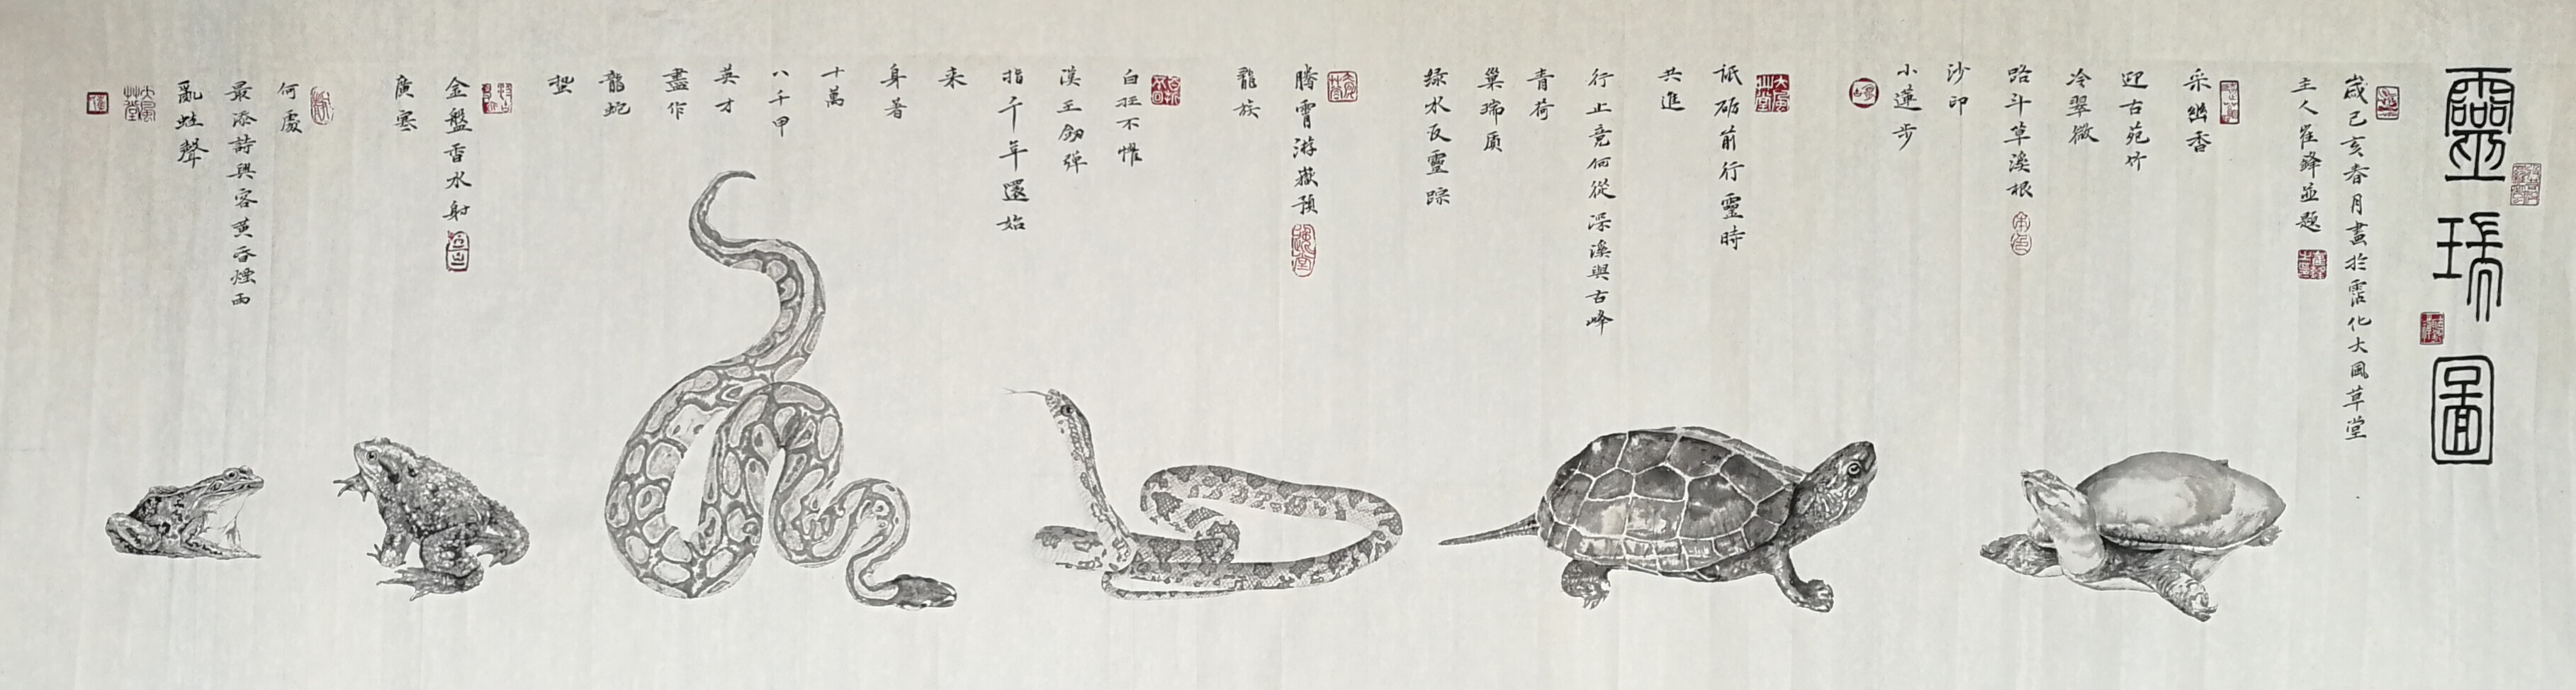 靈瑞圖
歲己亥春月畫於霑化大風草堂
主人崔鋒並題
采幽香
迎古苑竹
冷翠微
路斗草溪根
沙印
小蓮步
砥礪前行靈時
共進
行止竟何從深溪與古峰
青荷
巢瑞質
绿水反靈踪
騰霄游嶽預
龍族
白旺不懼
漢王劍彈
指千年還始
来
身著
十萬
八千甲
英才
盡作
龍蛇
蟄
金盤香水射
廣寒
何處
最添詩興客黃昏煙雨
亂蛙聲